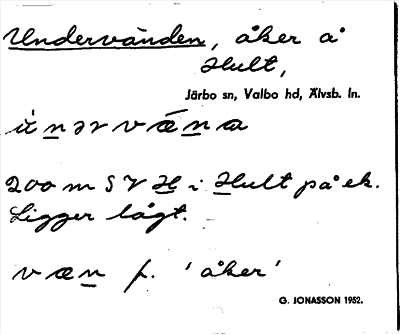 Undervänden, åker å
Hult,
Järbo sn, Valbo hd, Älvsb. ln.
ùnərvǽna
200 m SV H i Hult på ek.
Ligger lågt.
væn f. 'åker'
G. JONASSON 1952.